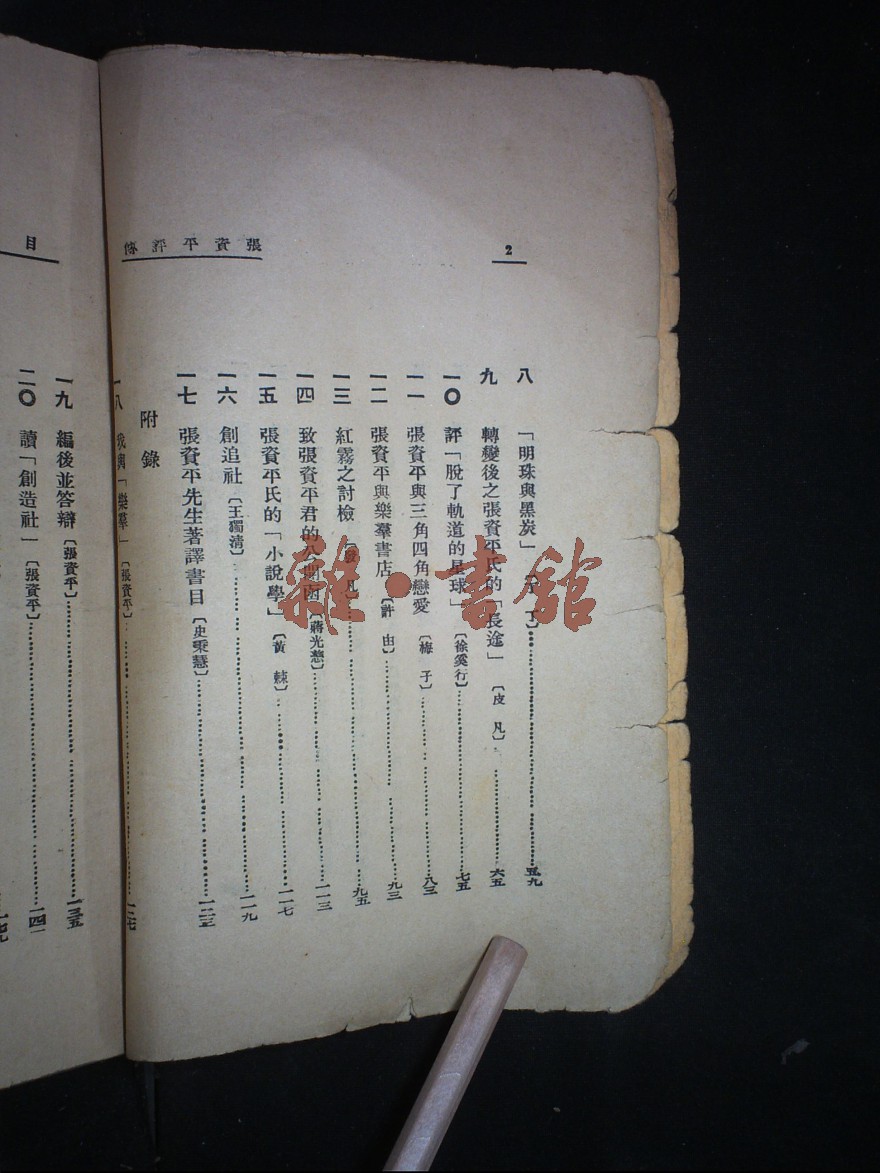 張資平評傳
2
八 「明珠與黑炭」
九 轉變後之張資平氏的「長途」 〔皮 凡〕 六五
一〇 評「脫了軌道的星球」 〔徐奚行〕 七五
一一 張資平與三角四角戀愛 〔梅 子〕 八三
一二 張資平與樂羣書店 〔許 由〕 九三
一三 紅霧之討檢 凡〕 九五
一四 致張資平君的公開函 〔蔣光慈〕 一一三
一五 張資平氏的「小說學」 〔黃 棘〕 一一七
一六 創追社 〔王獨清〕 一一九
一七 張資平先生著譯書目 〔史秉慧〕 一二三
附錄
一八 我與「樂羣」 〔張資平〕 一二七
目
一九 編後並答辯 〔張資平〕 一三五
二〇 讀「創造社」 〔張資平〕 一四一
一七九
雜·書館